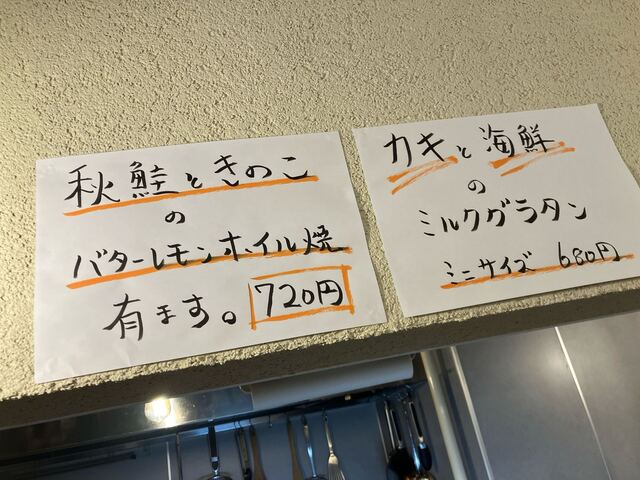 秋鮭ときのこ
の
バターレモンホイル焼
有ます。720円
カキと海鮮
の
ミルクグラタン
ミニサイズ 680円